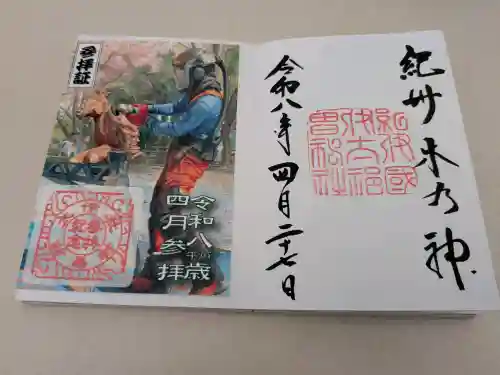 紀州木乃神
令和八年四月二十七日
紀伊國
伊太祁
曽神社
参拝証
令和八年の歳
四月参拝